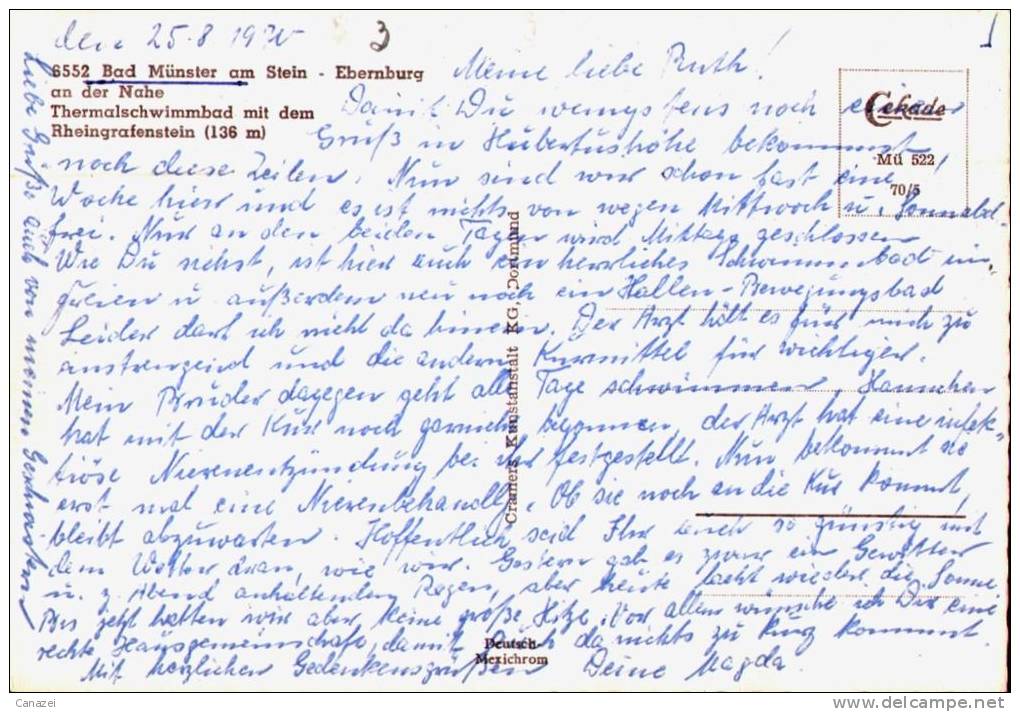 den 25.8 1970
3
6552 Bad Münster am Stein - Ebernburg
an der Nahe
Thermalschwimmbad mit dem
Rheingrafenstein (136 m)
Cekade
Mü 522
70/5
Meine liebe Ruth!
Damit Du wenigstens noch einen
Gruß in Hubertushöhe bekommst,
noch diese Zeilen. Nun sind wir schon fast eine
Woche hier und es ist nichts von wegen Mittwoch u. Sonnabd.
frei. Nur an den beiden Tagen wird Mittags geschlossen
Wie Du siehst, ist hier auch ein herrliches Schwimmbad im
Freien u außerdem neu noch ein Hallen-Bewegungsbad
Leider darf ich nicht da hinein. Der Arzt hält es für mich zu
anstrengend und die andern Kurmittel für wichtiger.
Mein Bruder dagegen geht alle Tage schwimmen, Hannchen
hat mit der Kur noch garnicht begonnen, der Arzt hat eine infek-
tiöse Nierenentzündung bei ihr festgestellt. Nun bekommt sie
erst mal eine Nierenbehandlg. Ob sie noch an die Kur kommt,
bleibt abzuwarten. Hoffentlich seid Ihr auch so günstig mit
dem Wetter dran, wie wir. Gestern gab es zwar ein Gewitter
u. z. Abend anhaltenden Regen, aber heute lacht wieder die Sonne
Bis jetzt hatten wir aber keine große Hitze. Vor allem wünsche ich Dir eine
rechte Hausgemeinschaft, damit Euch da nichts zu kurz kommt
Mit herzlichen Gedenkensgrüßen Deine Magda.
Liebe Grüße auch von meinen Geschwistern
Cramers Kunstanstalt KG. Dortmund
Deutsch-
Mexichrom
Canazei
delcampe.net